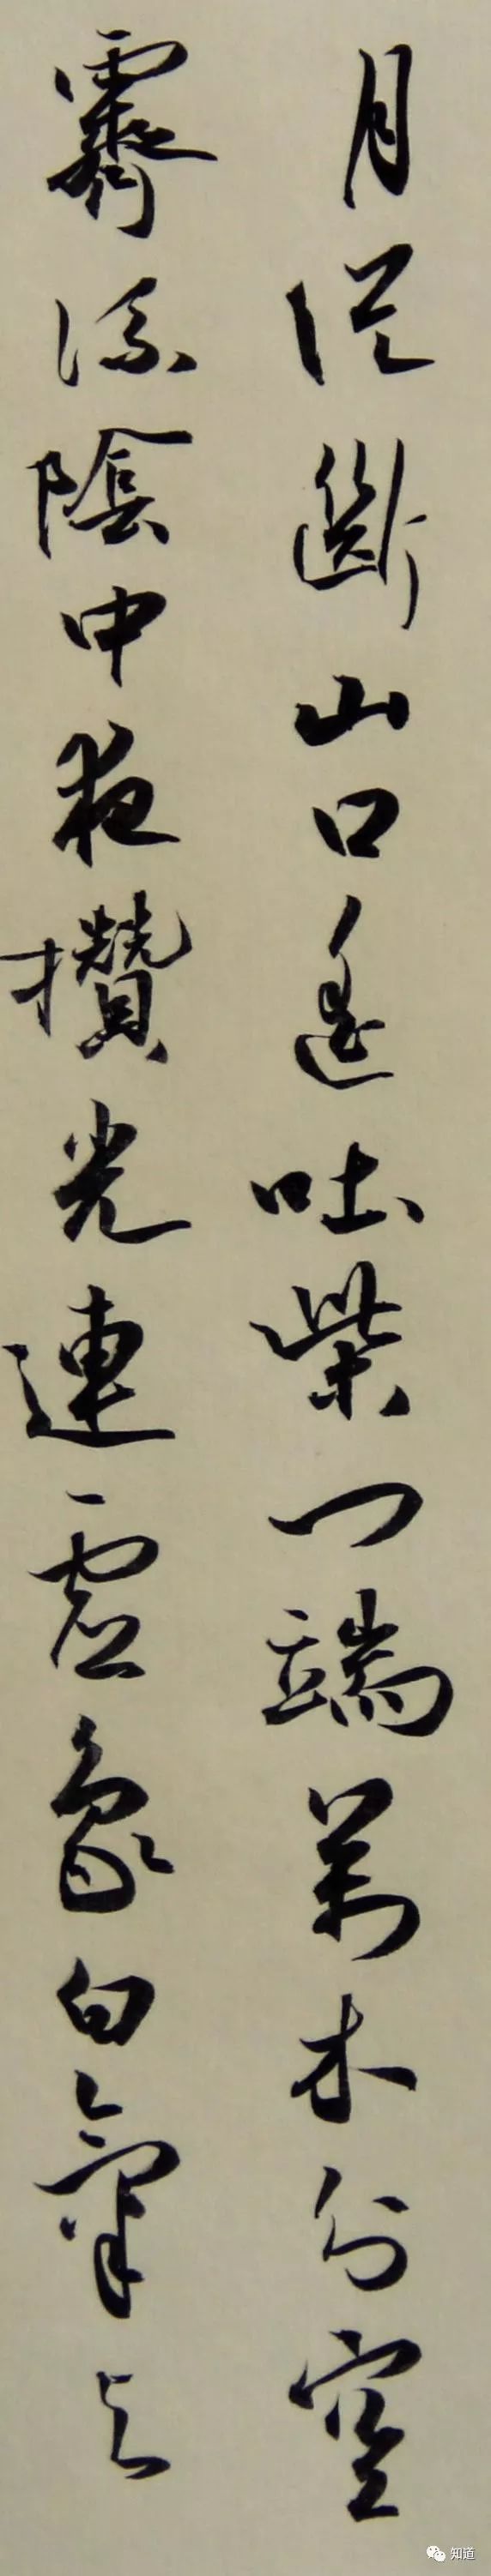 月從斷山口遙吐柴門端萬木分空
霽流陰中夜攢光連虛象白氣與
知道